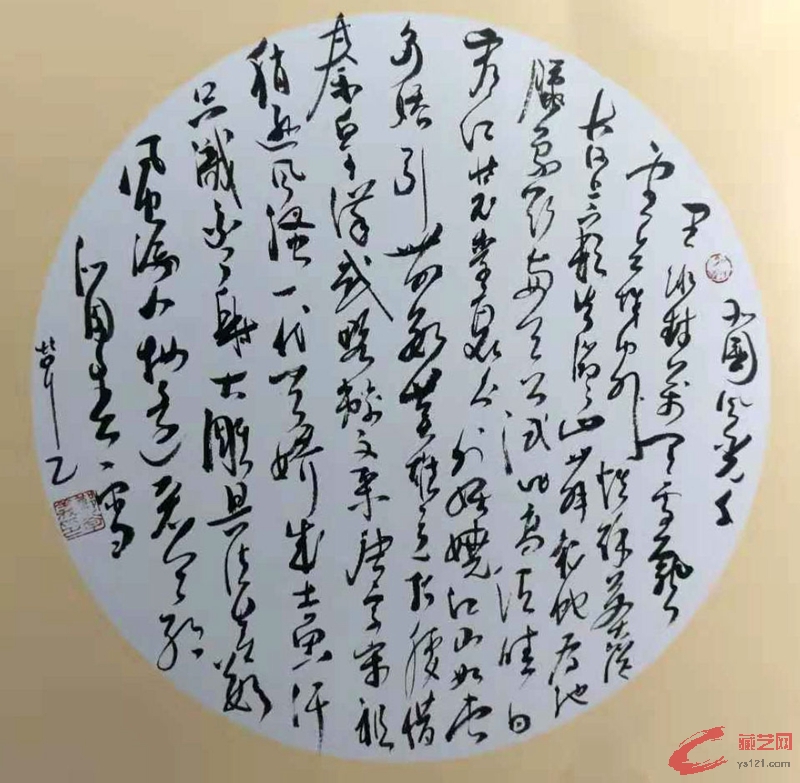 北國风光千
里冰封万里雪飘
望长城内外惟余莽莽
大河上下顿失滔滔山舞银蛇原驰
腊象欲与天公试比高须晴日
看红装素裹分外妖娆江山如此
多娇引无数英雄竞折腰惜
秦皇汉武略输文采唐宗宋祖
稍逊风骚一代天骄成吉思汗
只识弯弓射大雕俱往矣数
风流人物还看今朝
沁园春雪
藏艺网
ys121.com